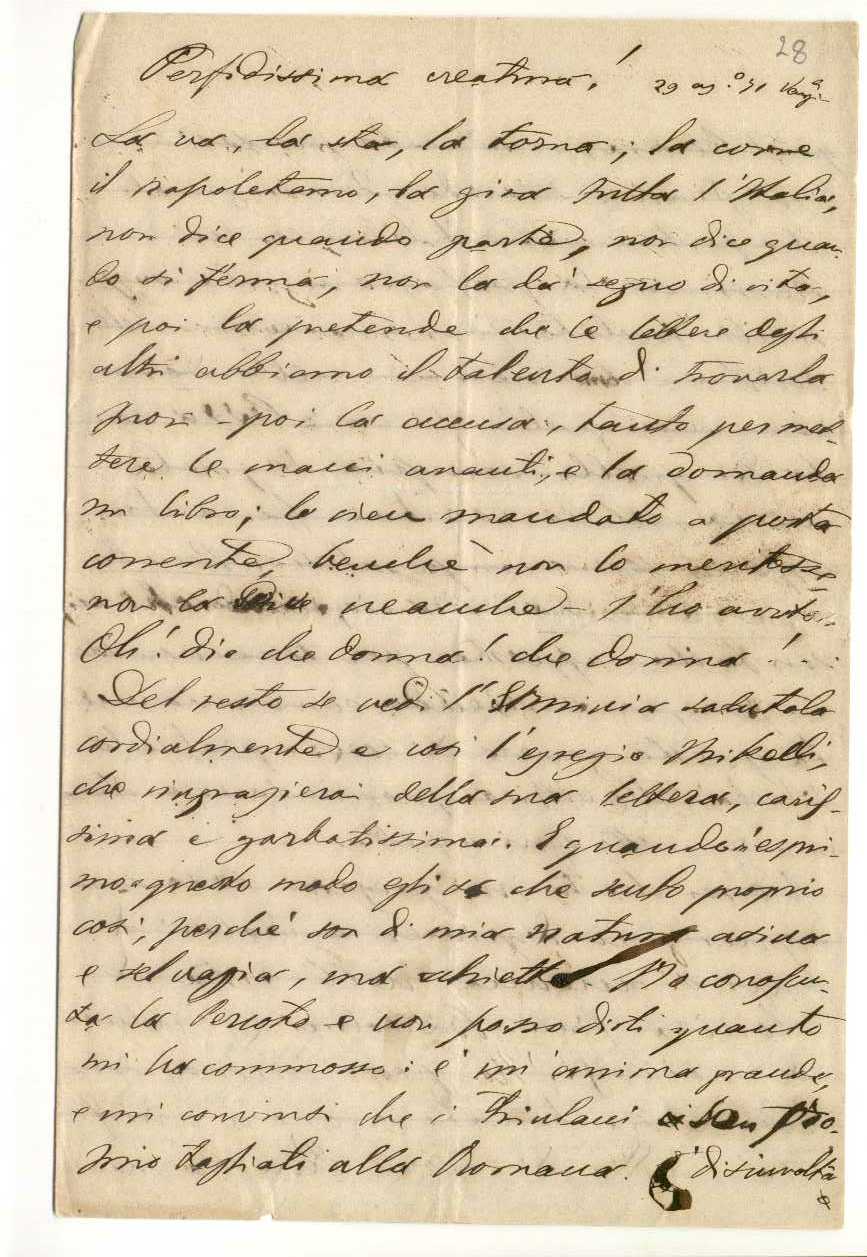 28
Perfidissima creatura!
29 ag.º 71
La va, la sta, la torna; la corre
il napoletano, la gira tutta l'Italia,
non dice quando parte, non dice quan-
do si ferma, non la dà segno di vita,
e poi la pretende che le lettere degli
altri abbiamo il talento di trovarla
fuori - poi la accusa, tanto per met-
tere le mani avanti, e la domanda
un libro; le vien mandato a posta
corrente, benchè non lo meritasse
non la dice neanche - l'ho avuto..
Oh! dio che donna! che donna!..
Del resto se vedi l' salutala
cordialmente e così l'egregio Mikelli,
che ringrazierai della sua lettera, caris-
sima e garbatissima. E quando m'espri-
mo a questo modo egli sa che sento proprio
così, perchè son di mia natura asina
e selvagia, ma schietta. Ho conosciu-
ta la Percoto e non posso dirti quanto
mi ha commosso: è un'anima grande,
e mi convinsi che i Friulani
tagliati alla Romana. È disinvolta
e